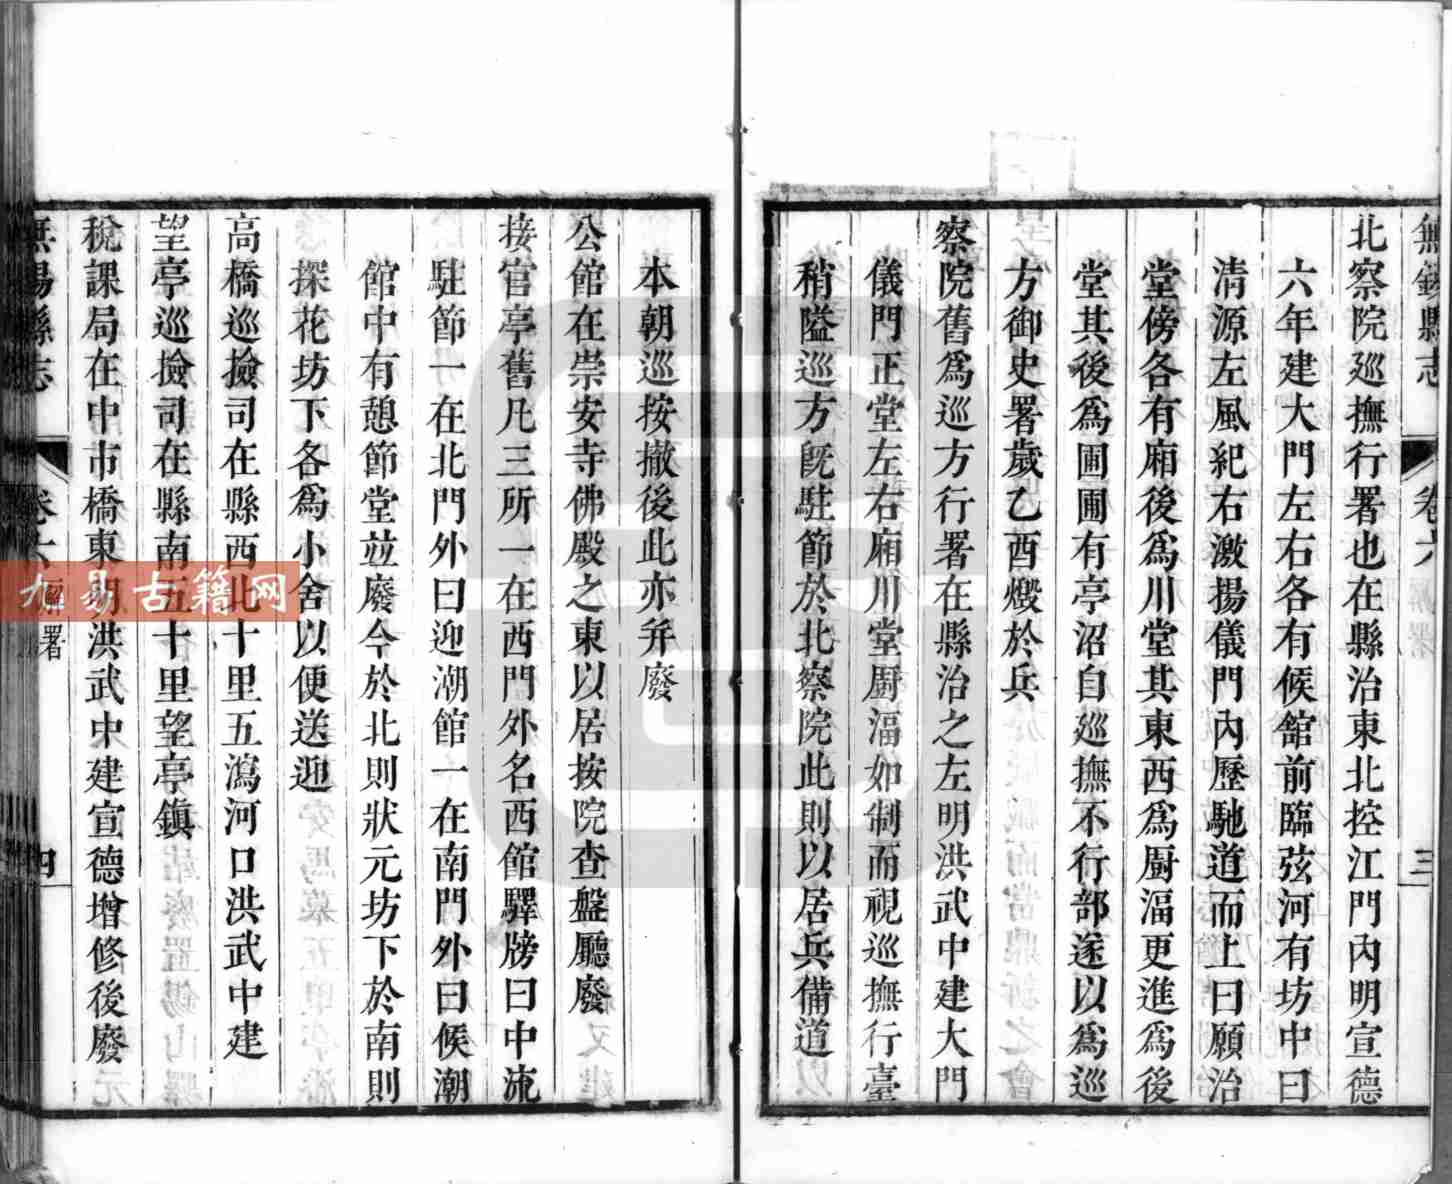 無錫縣志
卷六
廨署
三
北察院巡撫行署也在縣治東北控江門內明宣德
六年建大門左右各有候舘前臨弦河有坊中曰
清源左風紀右激揚儀門內歷馳道而上曰願治
堂傍各有廂後爲川堂其東西爲廚湢更進爲後
堂其後爲圃圃有亭沼自巡撫不行部遂以爲巡
方御史署歲乙酉燬於兵
察院舊爲巡方行署在縣治之左明洪武中建大門
儀門正堂左右廂川堂厨湢如制而視巡撫行臺
稍隘巡方旣駐節於北察院此則以居兵備道
本朝巡按撤後此亦并廢
公館在崇安寺佛殿之東以居按院查盤廳廢
接官亭舊凡三所一在西門外名西館驛牓曰中流
駐節一在北門外曰迎潮館一在南門外曰候潮
館中有憩節堂竝廢今於北則狀元坊下於南則
探花坊下各爲小舍以便送迎
高橋巡撿司在縣西北十里五瀉河口洪武中建
望亭巡撿司在縣南五十里望亭鎭
稅課局在中市橋東明洪武中建宣德增修後廢
無錫縣志
卷六
廨署
四
九易古籍网